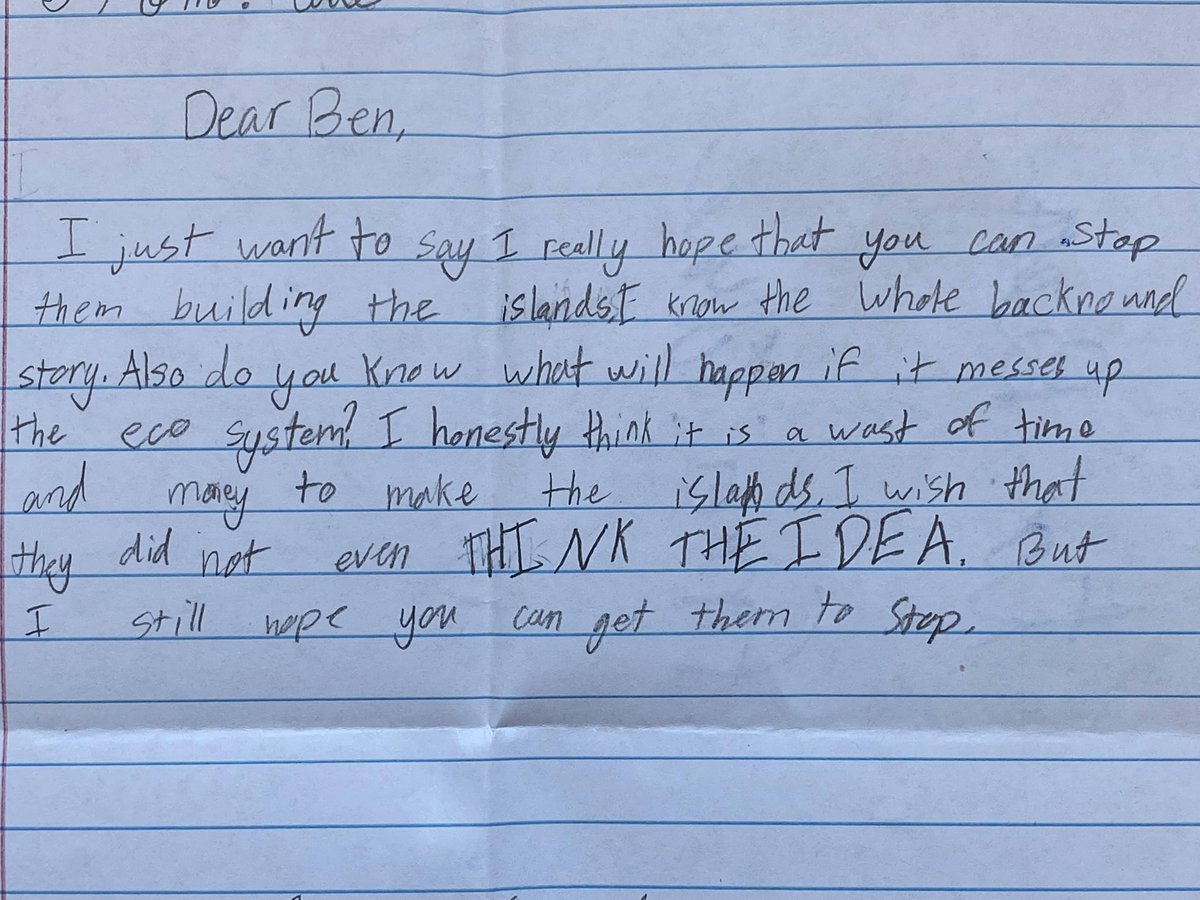 Dear Ben,
I just want to say I really hope that you can stop
them building the islands. I know the whole backround
story. Also do you know what will happen if it messes up
the eco system? I honestly think it is a wast of time
and money to make the islands. I wish that
they did not even THINK THE IDEA. But
I still hope you can get them to stop.